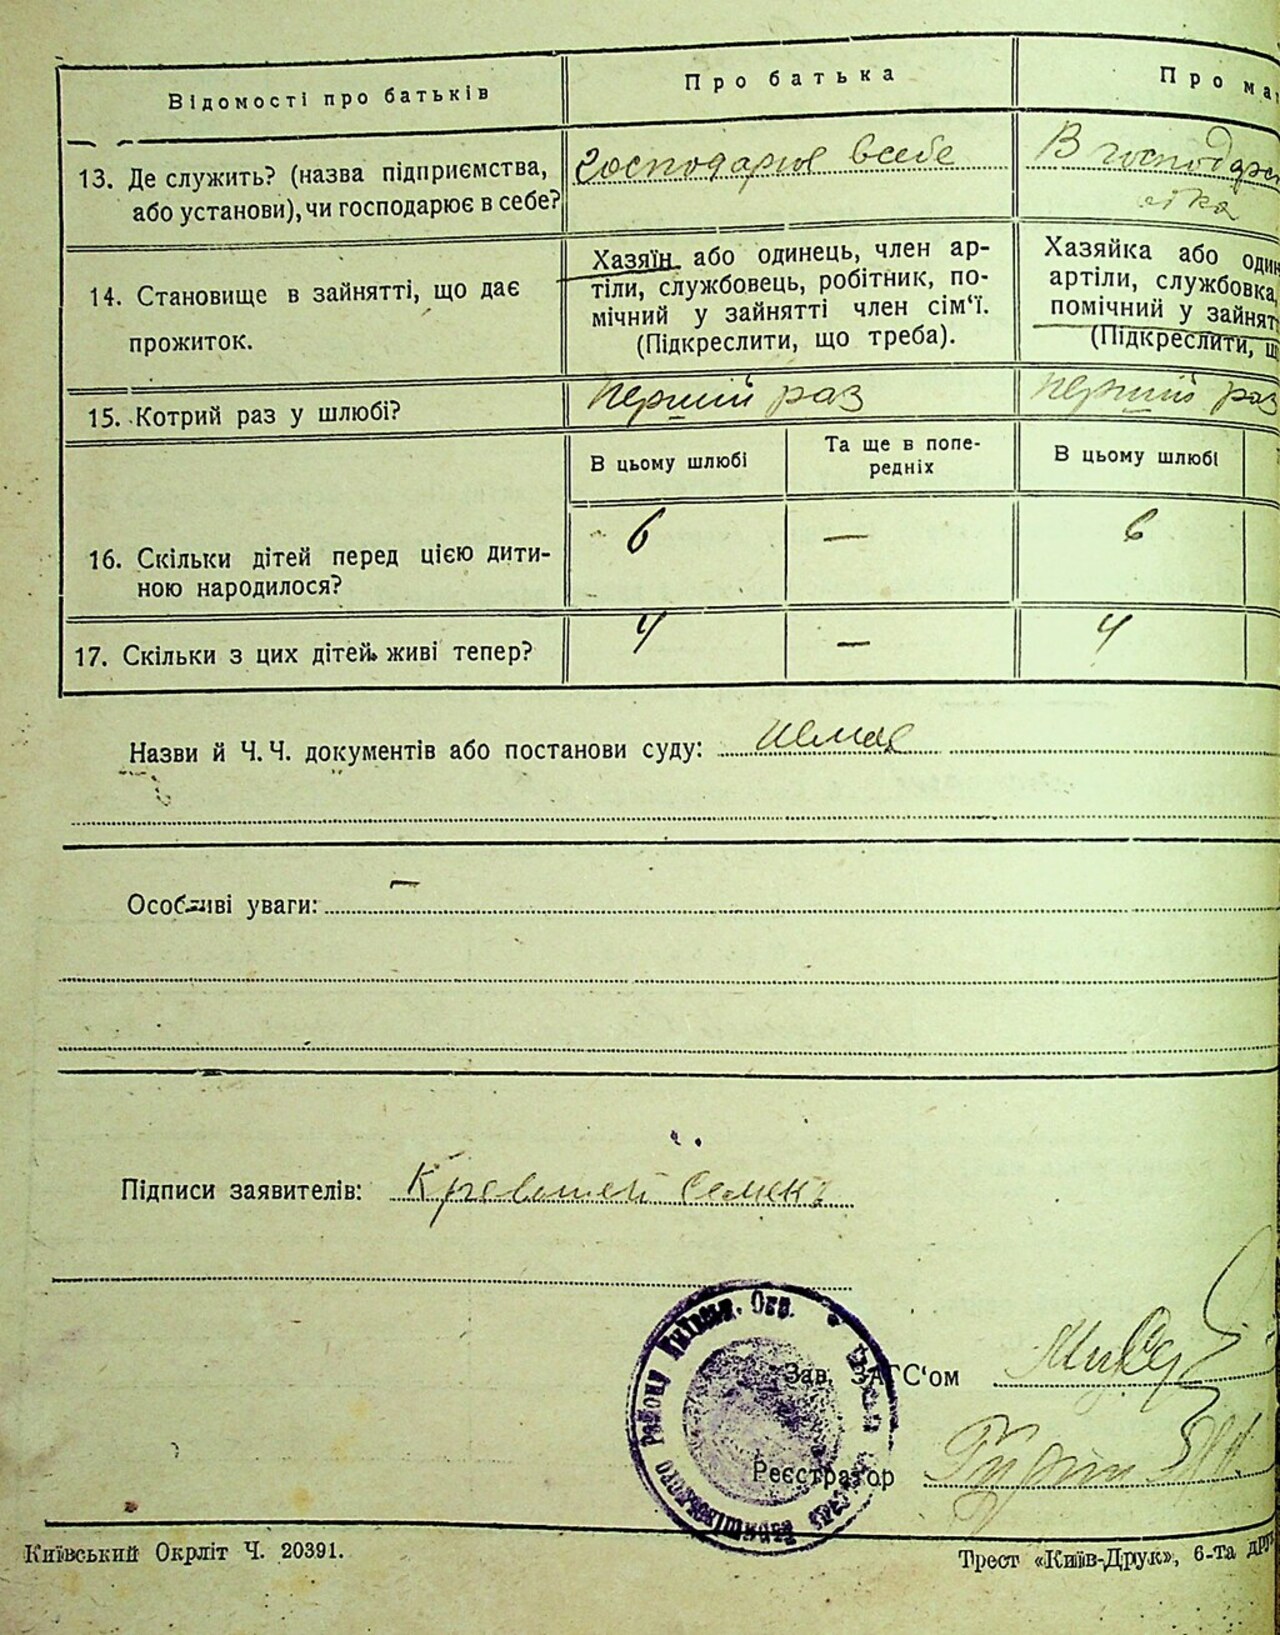 Відомості про батьків
Про батька
Про ма
13. Де служить? (назва підприємства,
або установи), чи господарює в себе?
господарює всебе
В господар
14. Становище в зайнятті, що дає
прожиток.
Хазяїн або одинець, член ар-
тіли, службовець, робітник, по-
мічний у зайнятті член сім‘ї.
(Підкреслити, що треба).
Хазяйка або один
артіли, службовка,
помічний у зайнят
(Підкреслити, щ
15. Котрий раз у шлюбі?
перший раз
перший раз
В цьому шлюбі
Та ще в попе-
редніх
В цьому шлюбі
16. Скільки дітей перед цією дити-
ною народилося?
6
—
6
17. Скільки з цих дітей живі тепер?
4
—
4
Назви й Ч. Ч. документів або постанови суду:
Особливі уваги: —
Підписи заявителів:
району Київськ. Окр.
Зав. ЗАГС‘ом
Реєстратор
Київський Окрліт Ч. 20391.
Трест «Київ-Друк», 6-та друк